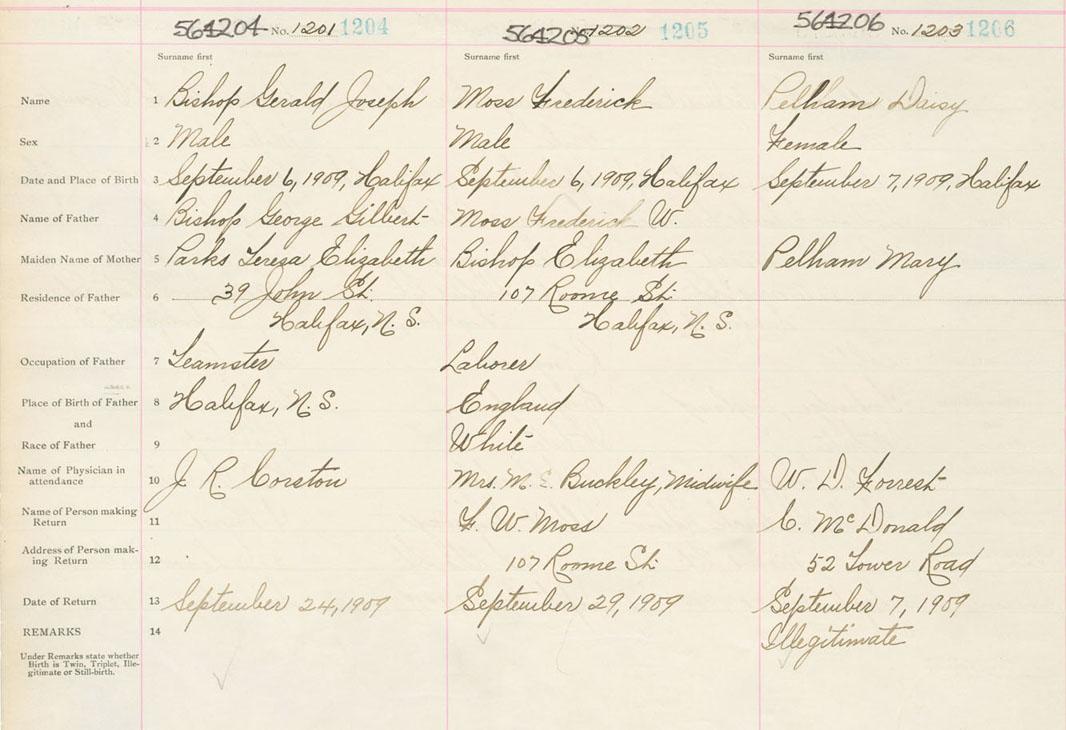 564204 No. 1201 1204 564205 No. 1202 1205 564206 No. 1203 1206
Surname first Surname first Surname first
Name 1 Bishop Gerald Joseph Moss Frederick Pelham Daisy
Sex 2 Male Male Female
Date and Place of Birth 3 September 6, 1909, Halifax September 6, 1909, Halifax September 7, 1909, Halifax
Name of Father 4 Bishop George Gilbert Moss Frederick W.
Maiden Name of Mother 5 Parks Teresa Elizabeth Bishop Elizabeth Pelham Mary
Residence of Father 6 39 John St. 107 Roome St.
Halifax, N. S. Halifax, N. S.
Occupation of Father 7 Teamster Laborer
Place of Birth of Father 8 Halifax, N. S. England
and
Race of Father 9 White
Name of Physician in
attendance 10 J. R. Corston Mrs. M. E. Buckley, Midwife W. D. Forrest
Name of Person making
Return 11 F. W. Moss C. McDonald
Address of Person mak-
ing Return 12 107 Roome St. 52 Tower Road
Date of Return 13 September 24, 1909 September 29, 1909 September 7, 1909
REMARKS 14 Illegitimate
Under Remarks state whether
Birth is Twin, Triplet, Ille-
gitimate or Still-birth.